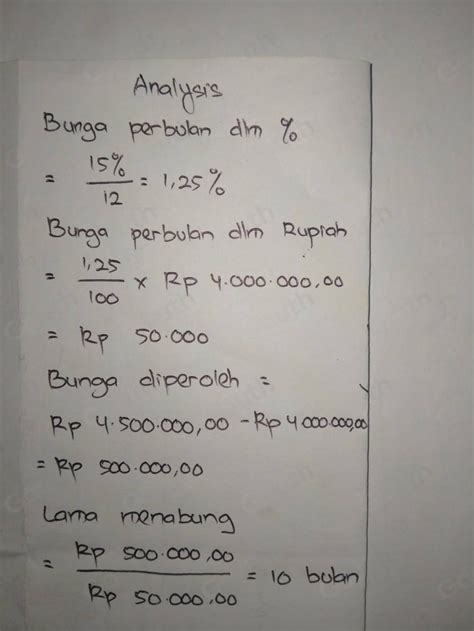 Analysis
Bunga perbulan dlm %
= 15% / 12 = 1,25%
Bunga perbulan dlm Rupiah
= 1,25 / 100 x Rp 4.000.000,00
= Rp 50.000
Bunga diperoleh =
Rp 4.500.000,00 - Rp 4.000.000,00
= Rp 500.000,00
Lama menabung
= Rp 500.000,00 / Rp 50.000,00 = 10 bulan